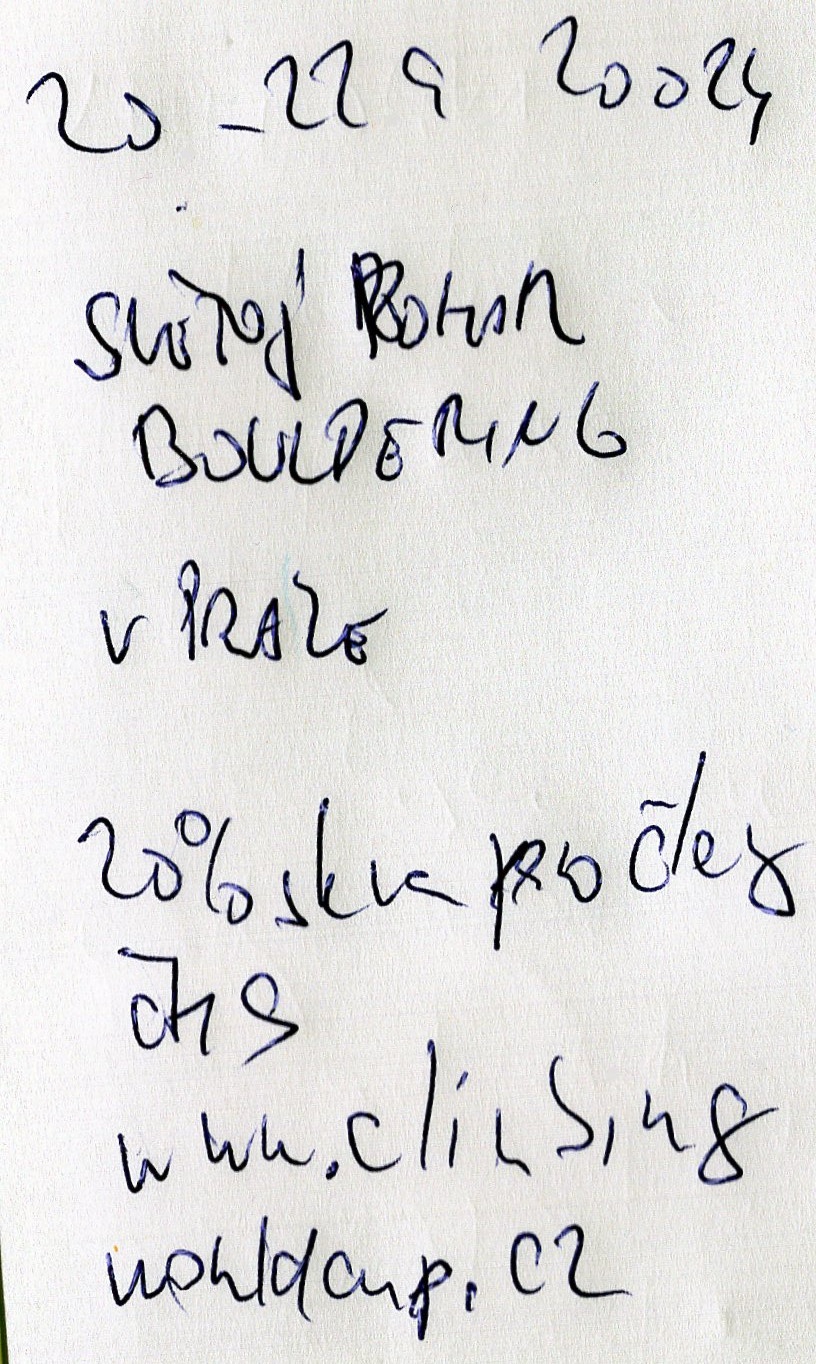 20 - 22 9 20024
SVĚTOVÝ POHÁR
BOULDERING
V PRAZE
20% sleva pro členy
ČHS
www.climbing
worldcup.cz